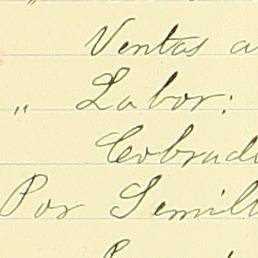 Ventas a
„ Labor:
Cobrad
Por Semill